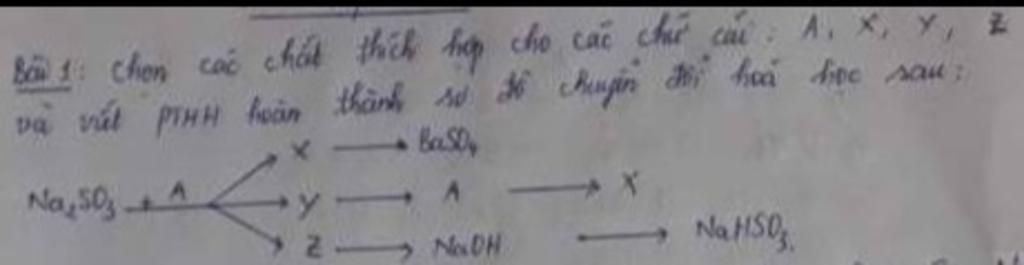 Bài 1: Chọn các chất thích hợp cho các chữ cái: A, X, Y, Z
và viết PTHH hoàn thành sơ đồ chuyển đổi hoá học sau:
X → BaSO₄
Na₂SO₃ + A → Y → A → X
Z → NaOH → NaHSO₃.